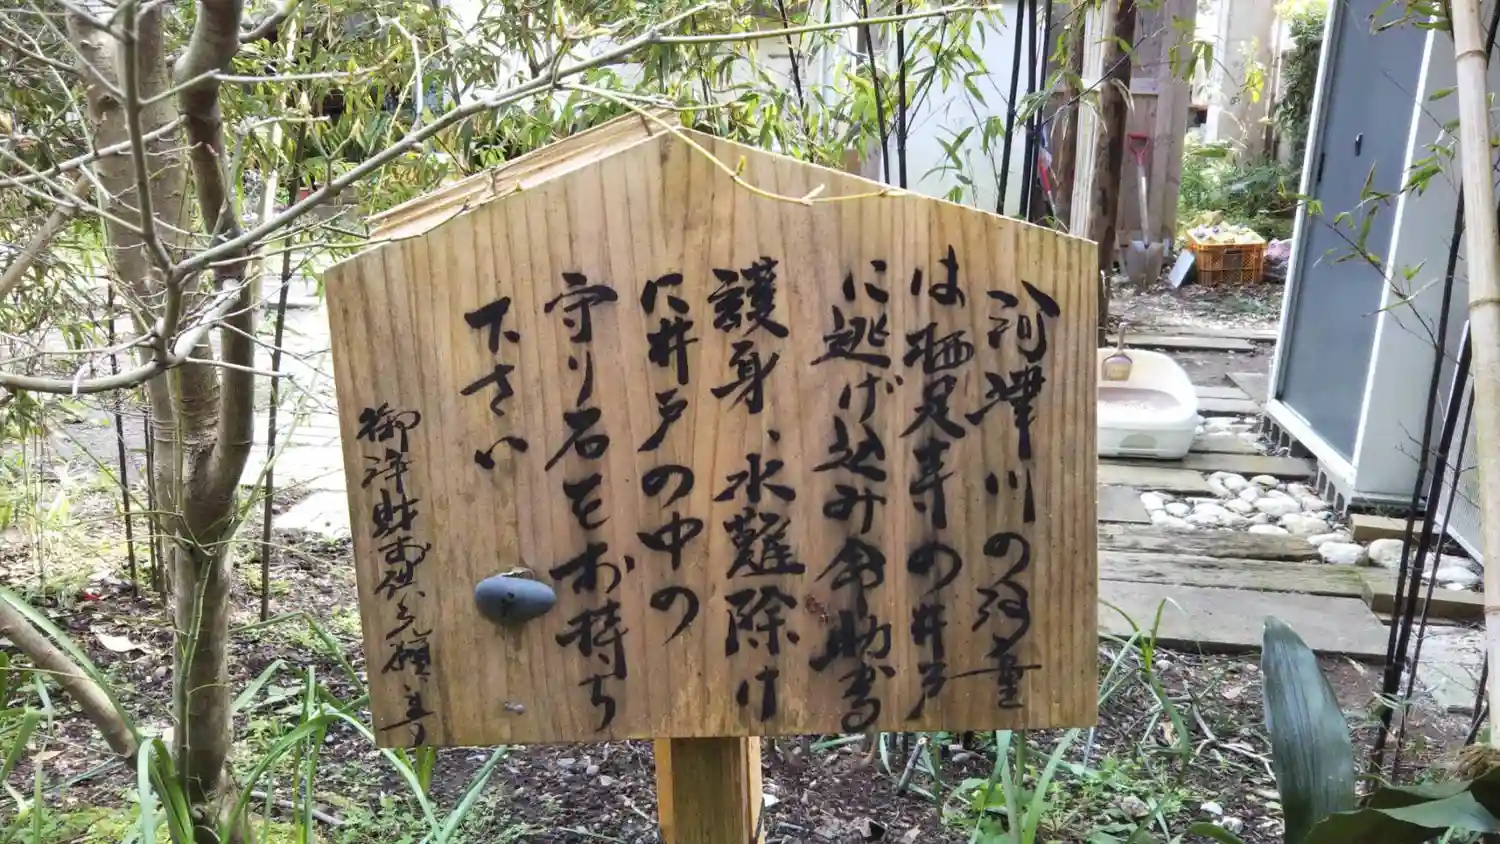 河津川の河童
は栖足寺の井戸
に逃げ込み命助かる
護身、水難除け
に井戸の中の
守り石をお持ち
下さい
御浄財お供え願ます